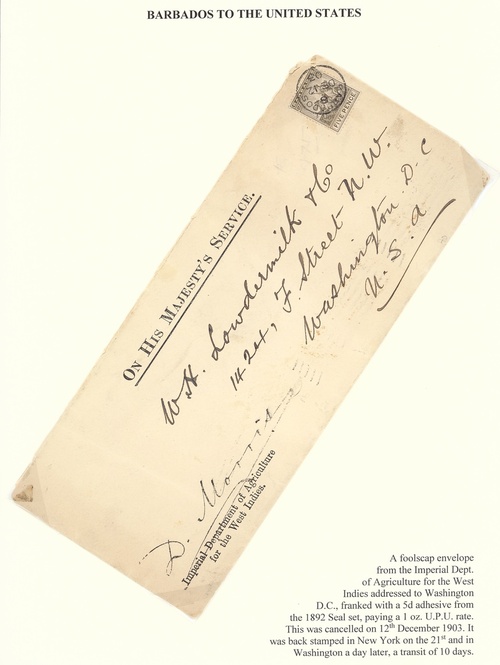 BARBADOS TO THE UNITED STATES
FIVE PENCE
ON HIS MAJESTY'S SERVICE.
W.H. Lowdermilk & Co
1424, F. Street N.W.
Washington D.C
U.S.A
D. Morris
Imperial Department of Agriculture
for the West Indies.
A foolscap envelope
from the Imperial Dept.
of Agriculture for the West
Indies addressed to Washington
D.C., franked with a 5d adhesive from
the 1892 Seal set, paying a 1 oz. U.P.U. rate.
This was cancelled on 12th December 1903. It
was back stamped in New York on the 21st and in
Washington a day later, a transit of 10 days.